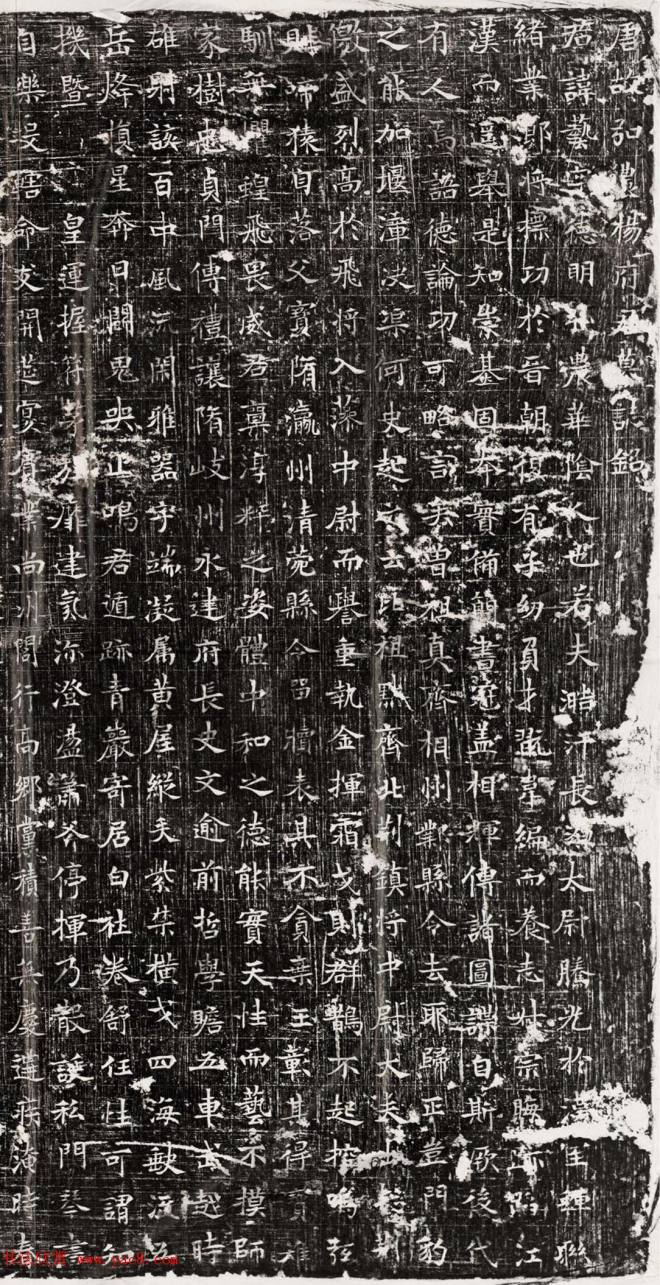 唐故弘農楊府君墓誌銘
君諱藝字德明弘農華陰人也若夫浩汗長瀾太尉騰光於漢室蟬聯
緒業郎將標功於晉朝復有子幼負才翫韋編而養志叔宗晦跡江
漢而選舉是知崇基固本實備簡書冠蓋相輝傳諸圖諜自斯厥後代
有人焉語德論功可略言矣曾祖真齊相州鄴縣令去邪歸正豈門豹
之能加堰漳決渠何史起之云比祖齊北荊鎮將中尉大夫
盛烈高於飛將入藻中尉而譽重執金揮霜戈則群鶴不起控鳴弦
啼猿自落父寶隋瀛州清苑縣令留犢表其不貪棄玉彰其得寶
馴蝗飛畏威君稟淳粹之姿體中和之德能實天性而藝不模師
家樹忠貞門傳禮讓隋岐州永建府長史文逾前哲學贍五車武越時
雄射該百中風流閑雅器宇端凝屬黃屋縱矢紫禁橫戈四海
岳烽損星奔日鬭鬼哭止鳴君遁跡青巖寄居白社卷舒任性可謂知
機暨皇運握符建氛沴澄蕭斧停揮乃散誕私門琴書
自樂爰命友開筵宴賓業尚州閭行高鄉黨積善無慶遘疾
www.yac8.com